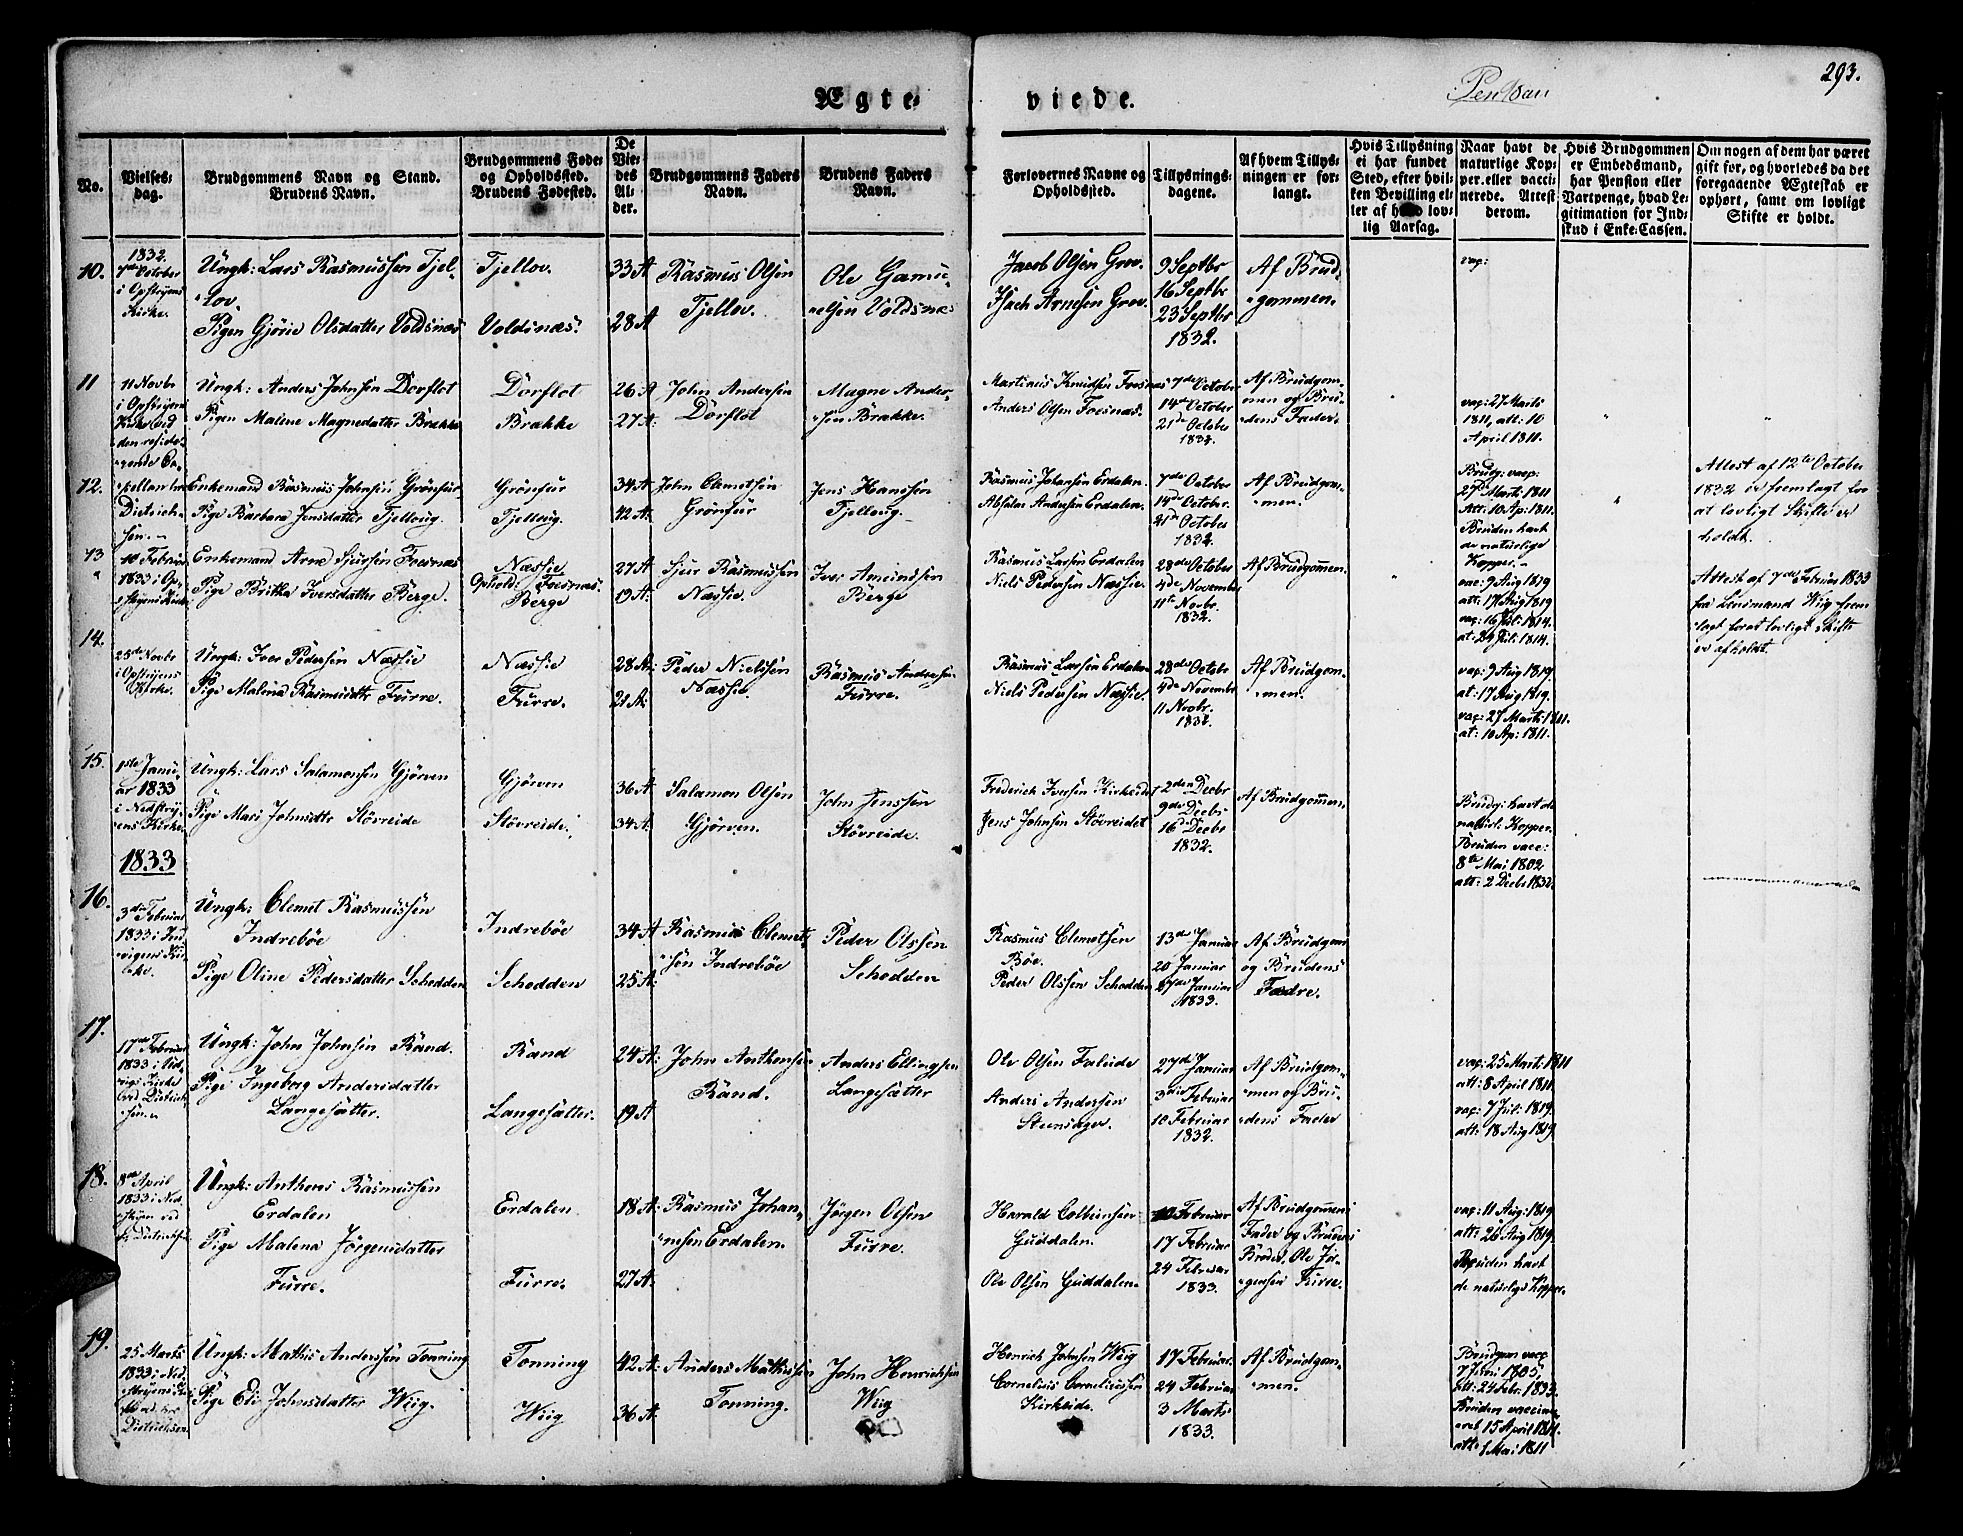 293.
Ægte- viede.
No.
Vielses-
dag.
Brudgommens Navn og Stand.
Brudens Navn.
Brudgommens Føde-
og Opholdssted.
Brudens Fødested.
De
Vie-
des
Al-
der.
Brudgommens Faders
Navn.
Brudens Faders
Navn.
Forlovernes Navne og
Opholdssted.
Tillysnings-
dagene.
Af hvem Tillys-
ningen er for-
langt.
Hvis Tillysning
ei har fundet
Sted, efter hvil-
ken Bevilling el-
ler af hvad lov-
lig Aarsag.
Naar havt de
naturlige Kop-
per eller vacci-
nerede. Attest
derom.
Hvis Brudgommen
er Embedsmand,
har Pension eller
Vartpenge, hvad Le-
gitimation for Ind-
skud i Enke-Cassen.
Om nogen af dem har været
gift før, og hvorledes da det
foregaaende Ægteskab er
ophørt, samt om lovligt
Skifte er holdt.
10.
1832.
7de October
i Opstryens
Kirke.
Ungk: Lars Rasmussen Tjel-
lov.
Pigen Gjørie Olsdatter Voldsnæs
Tjellov.
Voldsnæs.
33 A
28 A
Rasmus Olsen
Tjellov.
Ole Gamu-
elsen Voldsnæs
Jacob Olsen Grov.
Isach Arnesen Grov.
9 Septbr
16 Septbr
23 Septbr
1832.
Af Brud-
gommen.
vac:
11
11 Novbr
i Opstryens
Kirke ved
den reside-
rende Ca-
Ungk: Anders Johnsen Dorflot
Pigen Malene Magnedatter Brække
Dorflot
Brække
26 A
27 A:
John Andersen
Dorflot
Magne Ander-
sen Brække.
Martinus Knudsen Foesnæs
Anders Olsen Foesnæs.
7de October
14de October
21de October
1832.
Af Brudgom-
men og Bru-
dens Fader.
vac: 27 Marts
1811, att: 10
April 1811.
12.
pellan Hr
Dietrich-
sen.
Enkemand Rasmus Johnsen Grønfur
Pige Barbara Jensdatter Tjelloug.
Grønfur
Tjelloug.
34 A
42 A:
John Clemetsen
Grønfur
Jens Hanssen
Tjelloug.
Rasmus Johansen Erdalen.
Absalon Andersen Erdalen.
7de October
14de October.
21de October
1832.
Af Brudgom-
men.
Brudg: vacc:
27 Marts 1811
Att: 10 Ap: 1811.
Bruden havt
de naturlige
Kopper.
Attest af 12te October
1832 er fremlagt for
at lovligt Skifte er
holdt.
13
10 Februar
1833 i Op-
stryens Kirke
Enkemand Arne Sjursen Foesnæs
Pige Britha Iversdatter Berge.
Næssie
Ophold: Foesnæs.
Berge
27 A
19 A:
Sjur Rasmussen
Næssie.
Iver Amundsen
Berge
Rasmus Larsen Erdalen
Niels Pedersen Næssie.
28de October
4de November
11te Novbr.
1832.
Af Brudgommen.
vac: 9 Aug 1819
att: 17 Aug 1819
vac: 16 Jul: 1814.
at: 24 Jul: 1814.
Attest af 7de Februar 1833
fra Lensmand Wiig frem
lagt for at lovligt Skifte
er afholdt.
14.
25de Novbr
i Opstryens
Kirke.
Ungk: Iver Pedersen Næssie
Pige Malena Rasmusdtr Furre.
Næssie
Furre.
28 A:
21 A:
Peder Nielssen
Næssie.
Rasmus Andersen
Furre.
Rasmus Larsen Erdalen
Niels Pedersen Næssie.
28de Octobr
4de November
11 Novbr.
1832.
Af Brudgom-
men.
vac: 9 Aug 1819.
at: 17 Aug 1819.
vac: 27 Marts 1811.
at: 10 Ap: 1811.
15.
1ste Janu-
ar 1833
i Nedstry-
ens Kirke.
Ungk: Lars Salamonsen Gjørven
Pige Mari Johnsdtr Støvreide
Gjørven
Støvreide.
36 A
34 A:
Salamon Olsen
Gjørven.
John Jenssen
Støvreide.
Frederich Iversen Kirkeide
Jens Johnsen Støvreidet
2den Decbr
9de Decbr
16de Decbr
1832.
Af Brudgommen.
Brudg: havt de
naturl: Kopper.
Bruden vacc:
8de Mai 1802
att: 2 Decbr 1832.
1833
16.
3die Februar
1833 i Ind-
vigens Kir-
ke.
Ungk: Clemet Rasmussen
Indrebøe
Pige Oline Pedersdatter Schodden
Indrebøe
Schodden
34 A
25 A:
Rasmus Clemet-
sen Indrebøe
Peder Olssen
Schodden
Rasmus Clemetsen
Bøe.
Peder Olssen Schodden
13de Januar
20 Januar
27de Januar
1833.
Af Brudgom
og Brudens
Fædre.
17.
17de Februar
1833 i Ind-
vigs Kirke
ved Dietrich-
sen.
Ungk: John Johnsen Rand.
Pige Ingeborg Andersdatter
Langesætter.
Rand
Langesætter.
24 A:
19 A
John Anthonsen
Rand.
Anders Ellingsen
Langesætter
Ole Olsen Faleide
Anders Andersen
Steensager.
27de Januar
3die Februar
10 Februar
1832.
Af Brudgom-
men og Bru-
dens Fader
vac: 25 Marts 1811
att: 8 April 1811.
vac: 7 Jul: 1819.
att: 18 Aug 1819
18.
8de April
1833 i Ned-
stryn ved
Ungk: Anthons Rasmussen
Erdalen
Pige Malena Jørgensdatter
Furre.
Erdalen
Furre.
18 A:
27 A:
Rasmus Johan-
nesen Erdalen.
Jørgen Olsen
Furre.
Harald Colbensen
Guddalen.
Ole Olsen Guddalen.
10 Februar
17 Februar
24 Februar
1833.
Af Brudgommens
Fader og Brudens
Broder, Ole Jør-
gensen Furre.
vac: 11 Aug: 1819.
att: 26 Aug 1819.
Bruden havt
de naturlige Kopper.
19.
25 Marts
1833 i Ned-
stryens Kir-
ke ved Hr
Dietrichsen.
Ungk: Mathis Anderssen Tonning
Pige Eli Johnsdatter Wiig.
Tonning
Wiig
42 A:
36 A:
Anders Mathissen
Tonning.
John Henrichsen
Wiig
Henrich Johnsen Wiig
Cornelius Corneliussen
Kirkeide.
17 Februar.
24 Februar
3 Marts
1833.
Af Brudgom-
men.
Brudgom vacc
7 Juni 1805,
att: 24 Febr. 1833.
Bruden vaccine-
ret 15 April 1811.
att: 1 Mai 1811